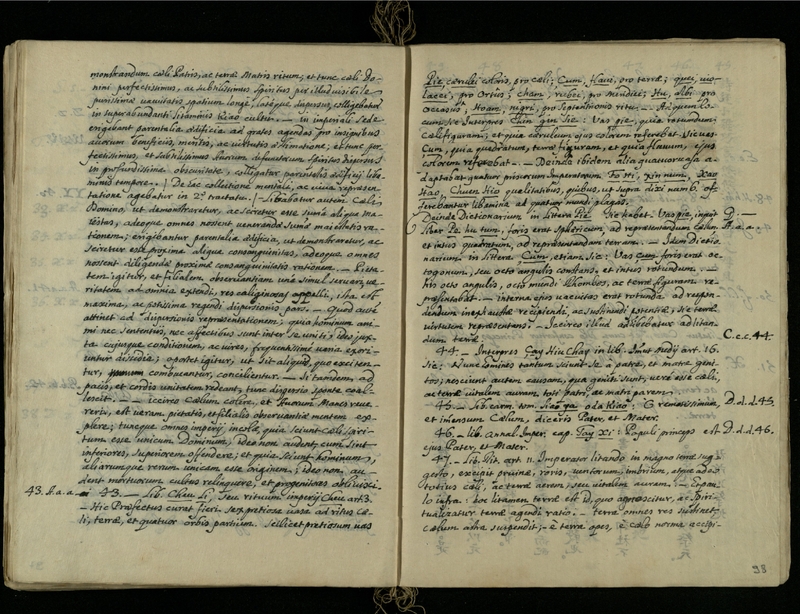 monstrandum cœli Patris, ac terræ Matris ritum; et tunc cœli Do-
mini perfectissimus, ac subtilissimus spiritus per illud visibile
purissimæ vacuitatis spatium longè, latèque dispersus, colligebatur
in suprabundanti litaminis Kiao cultu. — in imperiali sede
erigebant parentalia ædificia ad grates agendas pro insignibus
avorum beneficijs, meritis, ac virtutis æstimatione; et tunc per-
fectissimus, et subtilissimus Avorum defunctorum spiritus dispersus
in profundissima obscuritate, colligatur parentalis ædificij libi-
minis tempore. De hac collectione mentali, ac viva represen-
tatione agebatur in 2º tractatu. — Libabatur autem Cæli
Domino, ut demonstraretur, ac sciretur esse summa aliqua ma-
iestas, adeoque omnes nossent venerandæ summæ maiestatis ra-
tionem; erigebantur parentalia ædificia, ut demonstraretur, ac
sciretur esse proxima aliqua consanguinitas, adeoque omnes
nossent diligendæ proximæ consanguinitatis rationem. — Pieta-
tem igitur, et filialem observantiam unà simul servare, ve-
ritatem ad omnia extendi, res caliginosas appelli, ista est
maxima, ac potissima regendi dispersionis pars. — Quod autem
attinet ad dispersionis representationem; quia hominum ani-
mi nec sententijs, nec affectibus sunt inter se uniti; ideo jux-
ta cujusque conditionem, ac vires, frequentissimè varia exori-
untur discidia; oportet igitur, ut sit aliquid, quo exciten-
tur, commoveantur, concilientur. — Si tandem ad
pacis, et cordis unitatem redeant, tunc dispersio sponte coa-
lescit. — iccirco Cælum colere, et Avorum Manes reve-
reri, est veram pietatis, et filialis observantiæ mentem ex-
plere; tuncque omnis imperij incolæ, quia sciunt cæli spiri-
tum esse unicum Dominum, ideo non audent, cum sint
inferiores, Superiorem offendere; et quia sciunt hominum,
aliarumque rerum unicam esse originem; ideo non au-
dent mortuorum cultus relinquere, et progenitores oblivisci
43. A.a.a. — 43. — Lib. Cheu Li, seu rituum imperij Cheu art. 3.
— Hic Præfectus curat fieri sex pretiosa vasa ad ritus cæ-
li, terræ, et quatuor orbis partium. Scilicet pretiosum vas
Pie, cærulei coloris, pro cæli; Cum, flavi, pro terræ; quei, vio-
lacei, pro Ortus; cham, rubei, pro Meridiei; Hu, Albi pro
occasus; Hoam, nigri, pro Septentrionis ritu. — Ad quem lo-
cum sic Interpres Chin gin sic: Vas pie, quia rotundum,
cæli figuram; et quia cæruleum ejus colorem referebat. Sic vas
Cum, quia quadratum, terræ figuram, et quia flavum, ejus
colorem referebat. — Deinde ibidem alia quatuor vasa a-
daptabat quatuor priscorum Imperatorum Fo hi, xin num, Xao
Hao, Chuen Hio qualitatibus, quibus, ut supra dixi num. 6. of-
ferebantur libamina ad quatuor mundi plagas.
Deinde Dictionarium in littera Pie sic habet. Vas pie, inquit
liber Pe hu tum, foris erat sphericum, ad representandum cælum
et intus quadratum, ad representandam terram. — Idem Dictio-
narium in littera Cum, etiam sic: Vas cum foris erat oc-
togonum, seu octo angulis constans, et intus rotundum. —
his octo angulis, octo mundi Rhombos, ac terræ figuram re-
præsentabat. — interna ejus vacuitas erat rotunda ad respon-
dendum inexhaustæ recipiendi, ac sustinendi potentiæ; sic terræ
virtutem repræsentans. — Iccirco illud adhibebatur ad litan-
dum terræ.
C.c.c. 44.
44. — Interpres Çay Hiu Chay in lib. Imæ Audij art. 16.
sic: Nunc homines tantum sciunt se à patre, et matre geni-
tos; nesciunt autem causam, qua geniti sunt, verè esse cæli,
ac terræ vitalem auram, toti patri, ac matri parem.
D.d.d. 45.
45. — Lib. carm. tom. Siao ya oda Kiao: O remotissimum,
et immensum Cælum, diceris Pater, et Mater.
D.d.d. 46.
46. — lib. annal. Imper. cap. Tay Xi: Populi princeps est
ejus Pater, et Mater.
47. — Lib. Rit. art. 11. Imperator litando in magno terræ sug-
gesto, excipit pruinæ, roris, ventorum, imbrium, atque adeo
totius cæli, ac terræ aerem, seu vitalem auram. — Et pau-
lo infra: hoc litamen terræ est id, quo agnoscitur, ac spiri-
tualizatur terræ agendi ratio. — terra omnes res sustinet,
cælum astra suspendit; — è terra opes, è cælo norma accipi-
98